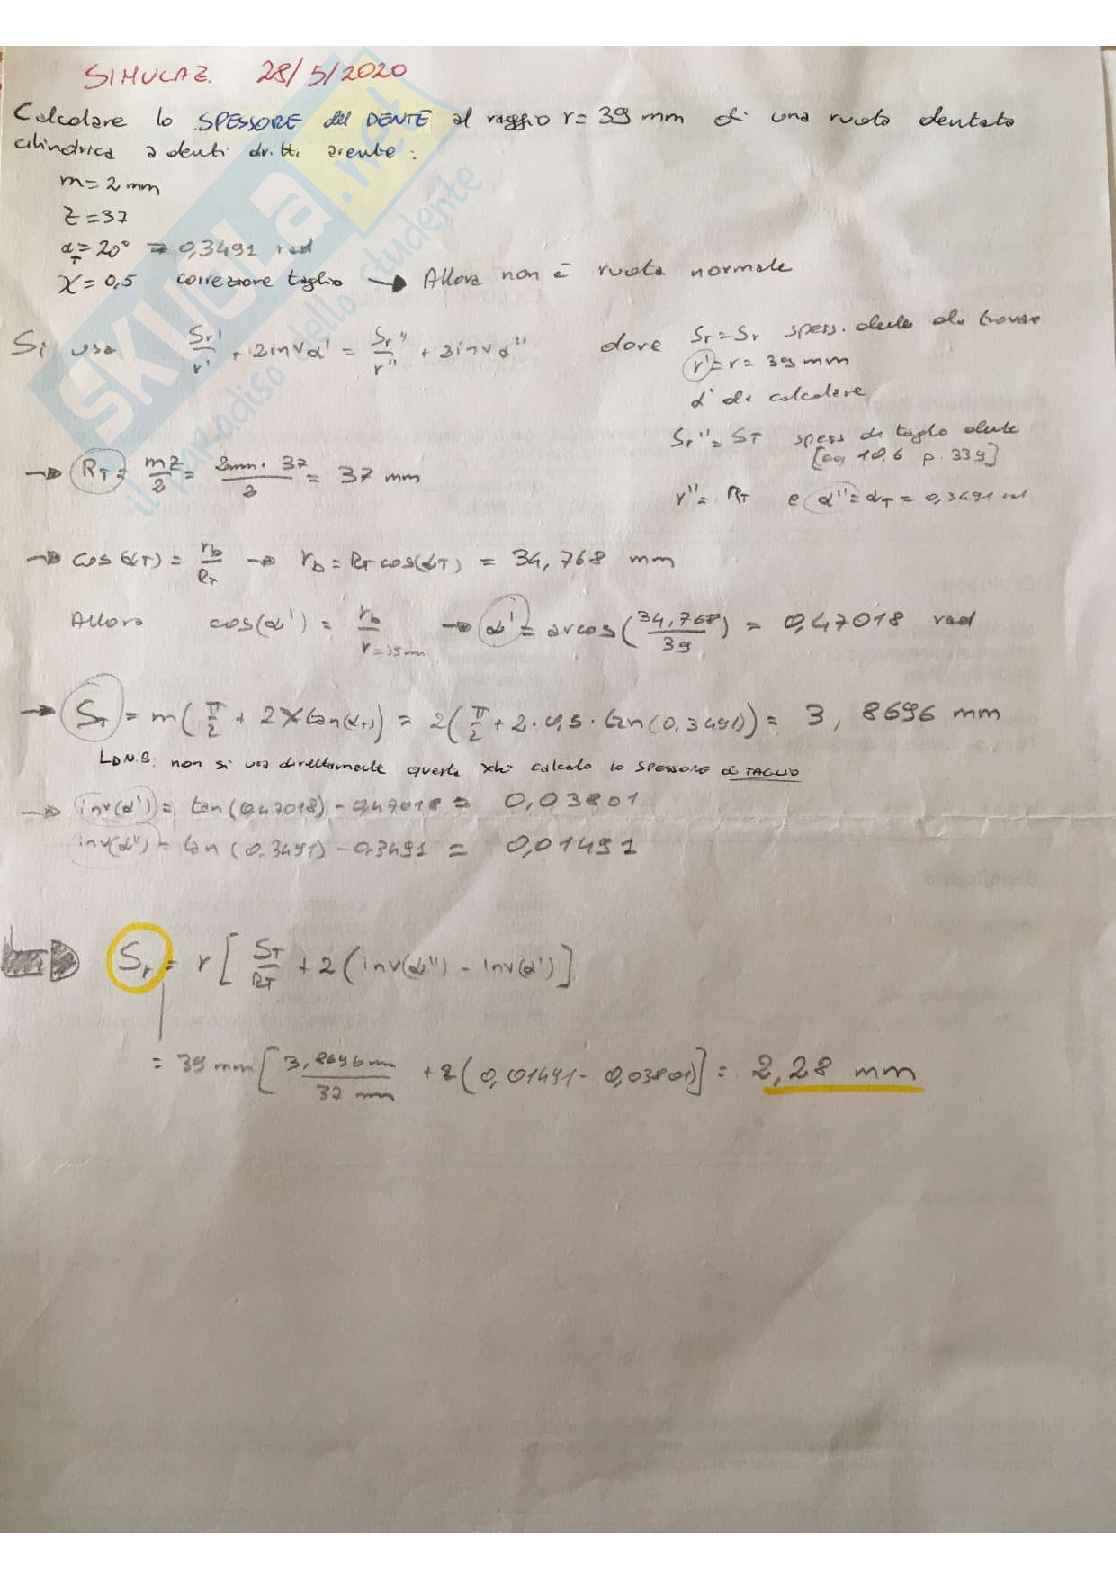 SIMULAZ. 28/5/2020
Calcolare lo SPESSORE del DENTE al raggio r = 39 mm di una ruota dentata
cilindrica a denti dritti avente :
m = 2 mm
Z = 37
α_T = 20° ⇒ 0,3491 rad
X = 0,5 correzione taglio → Allora non è ruota normale
Si usa Sr'/r' + 2invα' = Sr''/r'' + 2invα'' dove Sr' = Sr spess. dente da trovare
r' = r = 39 mm
α' da calcolare
Sr'' = ST spess di taglio dente
[eq 10.6 p. 339]
→ RT = mZ/2 = 2mm · 37/2 = 37 mm
r'' = RT e α'' = αT = 0,3491 rad
→ cos(αT) = rb/RT → rb = RT cos(αT) = 34,768 mm
Allora cos(α') = rb/r=39mm → α' = arcos(34,768/39) = 0,47018 rad
→ ST = m(π/2 + 2X tan(αT)) = 2(π/2 + 2·0,5·tan(0,3491)) = 3,8696 mm
N.B. non si usa direttamente questa xké calcola lo SPESSORE DI TAGLIO
→ inv(α') = tan(0,47018) - 0,47018 = 0,03801
inv(α'') = tan(0,3491) - 0,3491 = 0,01491
Sr = r [ST/RT + 2(inv(α'') - inv(α')]
= 39 mm [3,8696 mm/37 mm + 2(0,01491 - 0,03801)] = 2,28 mm
SKUOLA.net
il paradiso dello studente